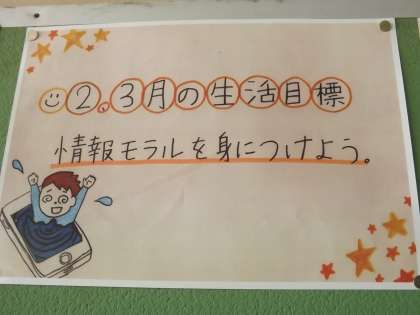 2.3月の生活目標
情報モラルを身につけよう。